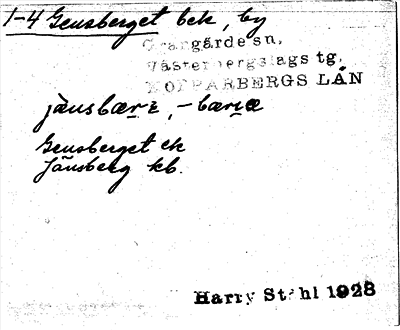 1-4 Gensberget bek, by
Grangärde sn,
Västerbergslags tg,
KOPPARBERGS LÄN
jànsbære, -bæræ
Gensberget ek
Jänsberg kb.
Harry Ståhl 1928